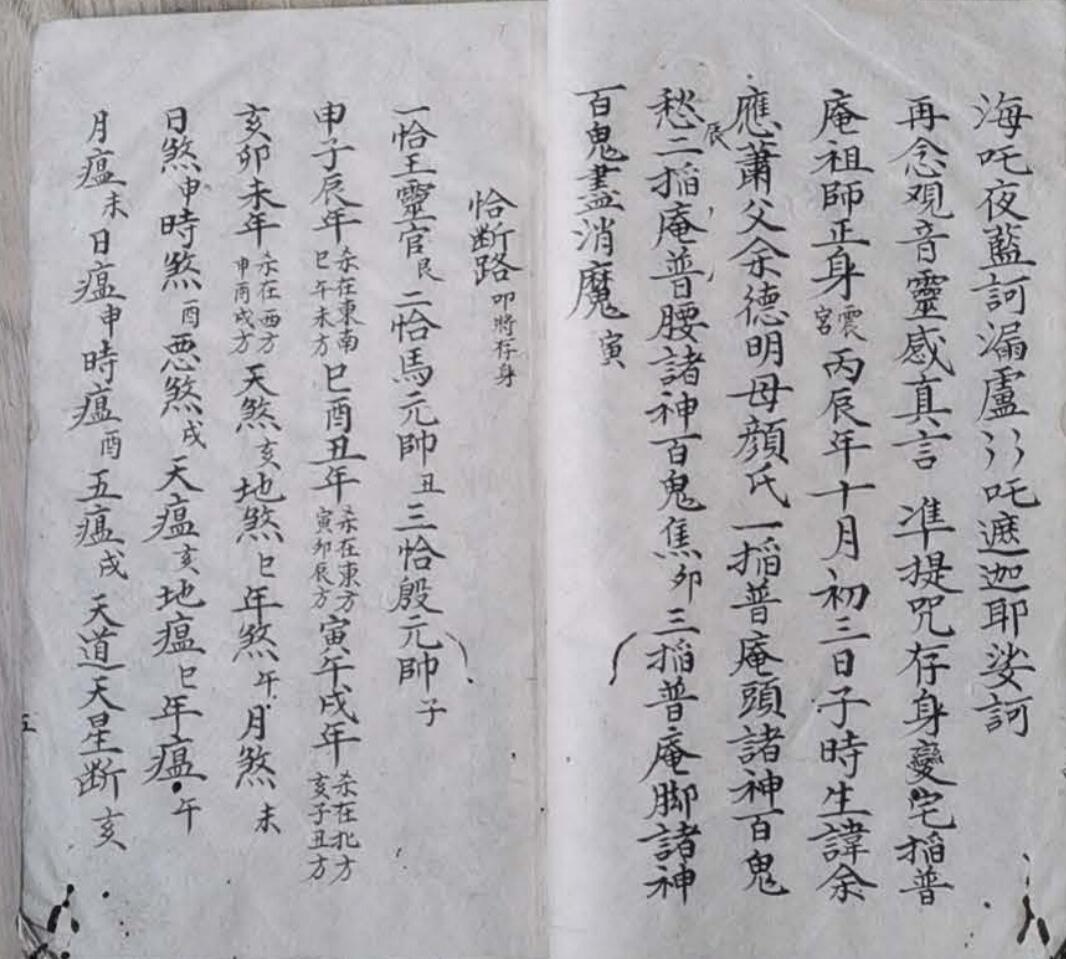 海吒夜藍訶漏盧冫冫吒遮迦耶娑訶
再念观音靈感真言 准提咒存身變宅搯普
庵祖師正身震宮丙辰年十月初三日子時生諱余
應蕭父余德明母顏氏一搯普庵頭諸神百鬼
愁辰二搯庵普腰諸神百鬼焦卯三搯普庵脚諸神
百鬼盡消魔寅
恰断路叩將存身
一恰王靈官艮二恰馬元帥丑三恰殷元帥子
申子辰年杀在東南巳午未方巳酉丑年杀在東方寅卯辰方寅午戌年杀在北方亥子丑方
亥卯未年杀在西方申酉戌方天煞亥地煞巳年煞午月煞未
日煞申時煞酉恶煞戌天瘟亥地瘟巳年瘟午
月瘟未日瘟申時瘟酉五瘟戌天道天星断亥
五